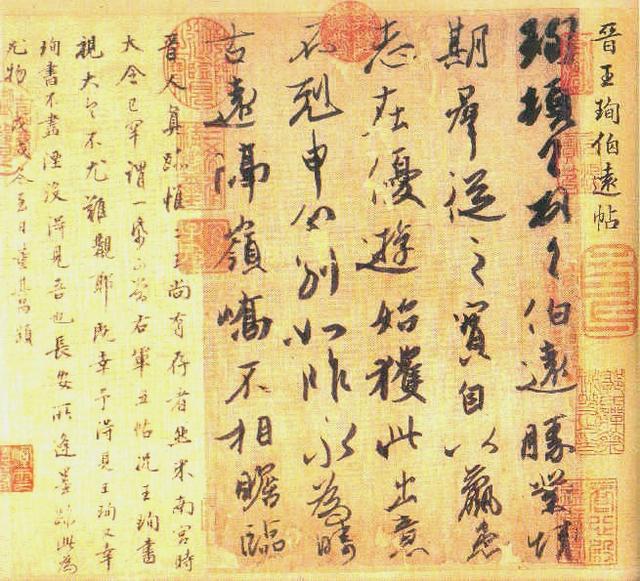 晉王珣伯遠帖
珣頓首頓首伯遠勝業情
期群從之寶自以羸患
志在優遊始獲此出意
不剋申分別如昨永為疇
古遠隔嶺嶠不相瞻臨
晉人真跡惟二王尚有存者然米南宮時
大令已罕謂一紙可當右軍五帖況王珣書
視大令不尤難覯耶既幸予得見王珣又幸
珣書不盡湮沒得見吾也長安所逢墨跡此為
尤物戊戌冬至日董其昌題